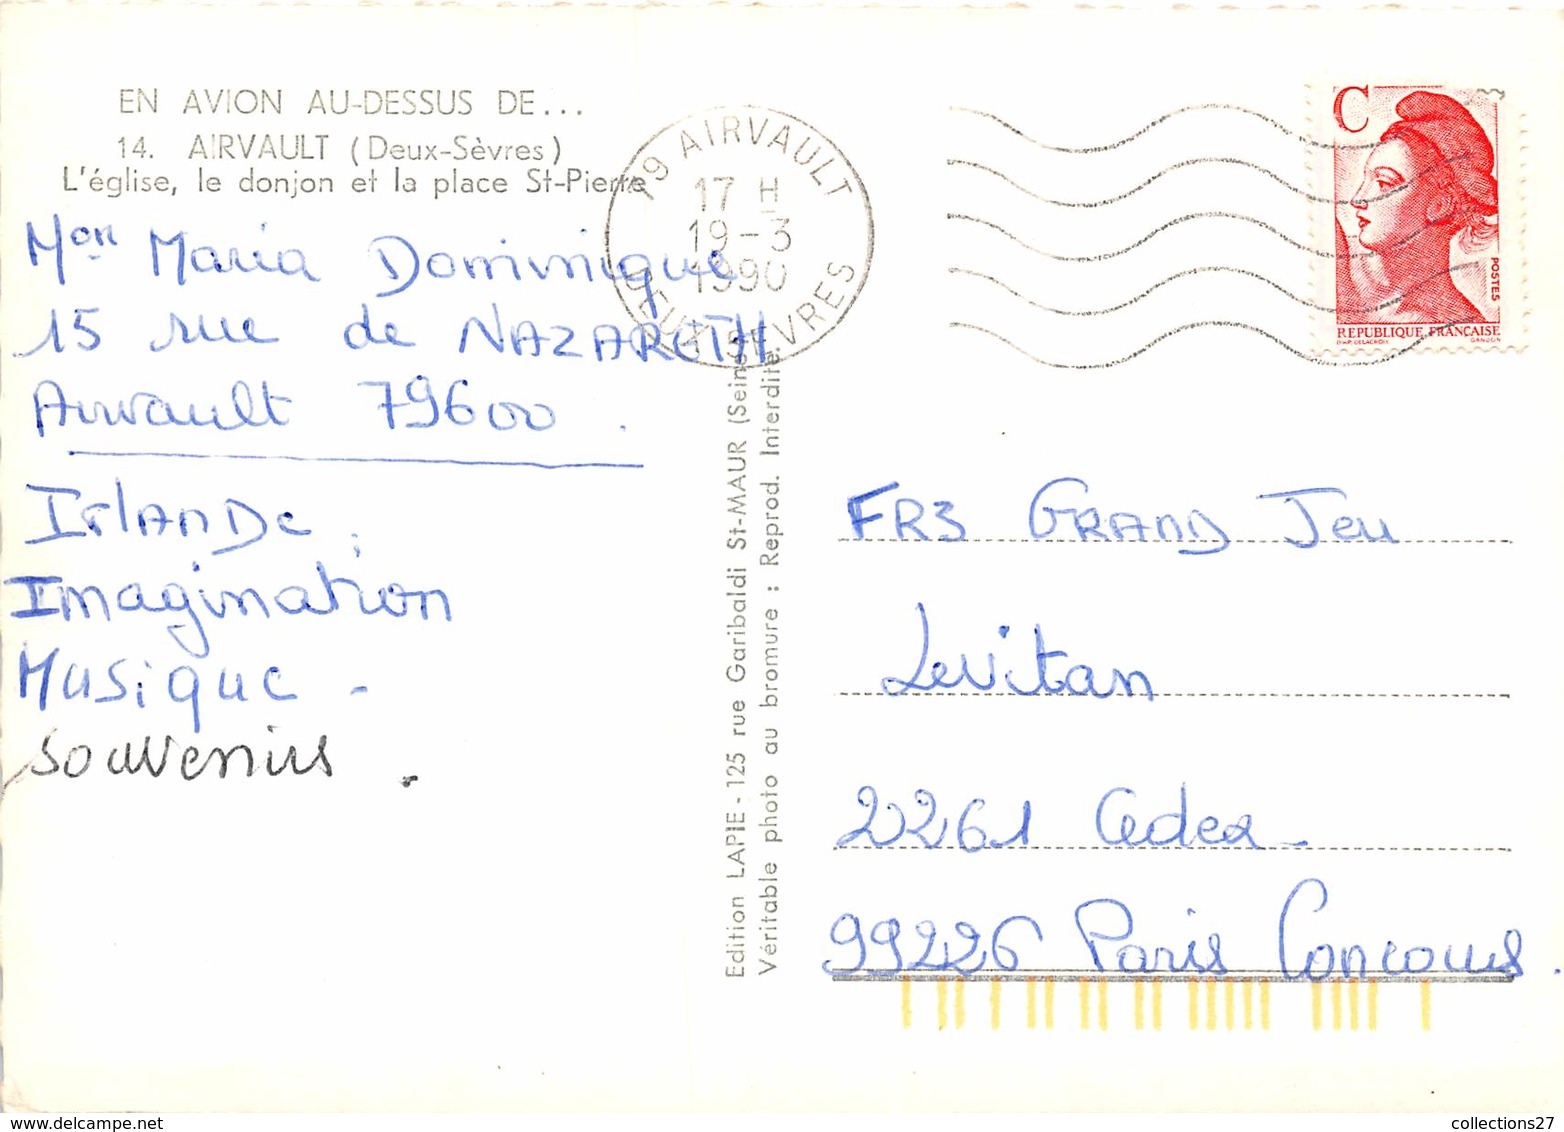 EN AVION AU-DESSUS DE...
14. AIRVAULT (Deux-Sèvres)
L'église, le donjon et la place St-Pierre
Mon Maria Dominique
15 rue de NAZARETH
Airvault 79600.
Islande.
Imagination
Musique -
souvenirs.
79 AIRVAULT
17 H
19-3
1990
DEUX SEVRES
Edition LAPIE - 125 rue Garibaldi St-MAUR (Seine)
Véritable photo au bromure : Reprod. Interdite.
C
POSTES
REPUBLIQUE FRANÇAISE
D'AP. DELACROIX GANDON
FR3 GRAND Jeu
Levitan
2261 Cedex -
99226 Paris Concours.
collections27